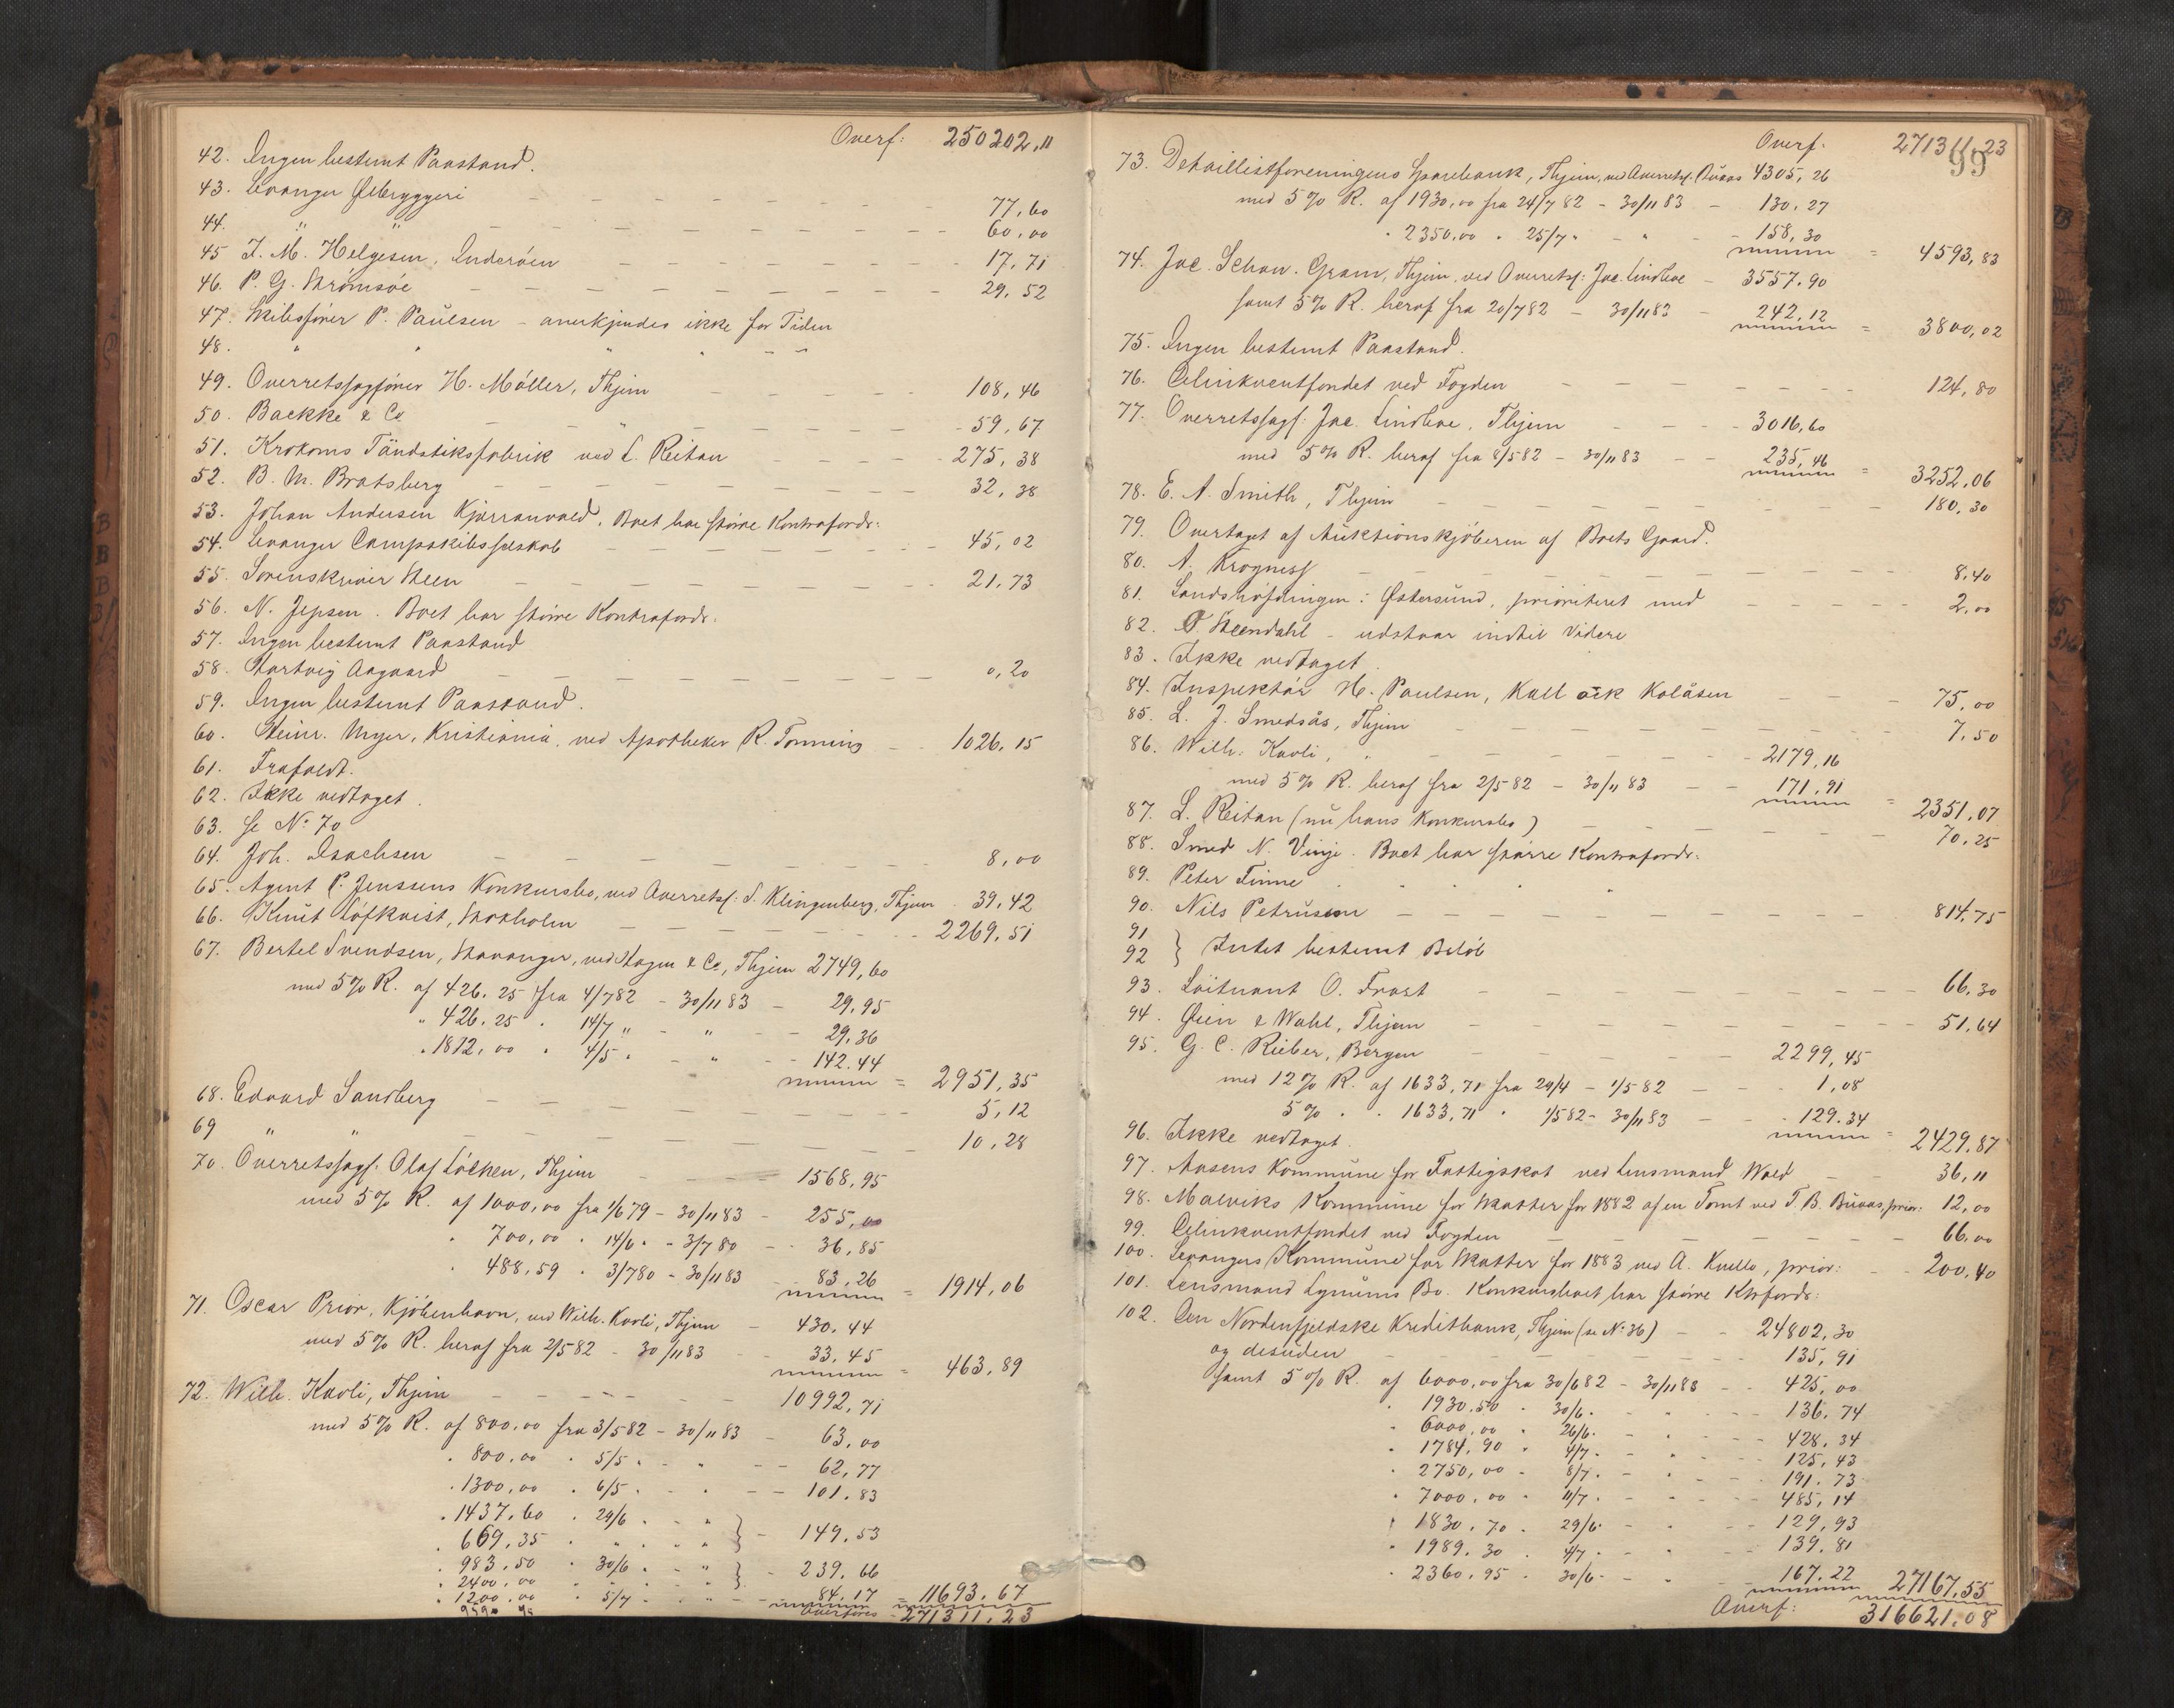 Overf: 250202,11
42. Ingen bestemt Paastand.
43. Levanger Ølbryggeri — 77,60
44. " " — 60,00
45 J. M. Helgesen, Inderøen — 17,71
46. P. G. Strømsøe — 29,52
47. Skibsfører P. Paulsen – anerkjendes ikke for Tiden
48. " " " " "
49. Overretssagfører H. Møller, Thjem — 108,46
50. Backke & Co " — 59,67
51. Krokoms Tändstiksfabrik ved L. Reitan — 275,38
52. B. M. Bratsberg — 32,38
53. Johan Andersen Kjærranvald, Boet har større Kontrafordr:
54. Levanger Dampskibsselskab — 45,02
55. Sorenskriver Steen — 21,73
56. N. Jepsen. Boet har større Kontrafordr:
57. Ingen bestemt Paastand
58. Hartvig Aagaard — 0,20
59. Ingen bestemt Paastand.
60. Heinr. Meyer, Kristiania, ved Apotheker R. Tonning — 1026,15
61. Frafaldt.
62. Ikke vedtaget.
63. Se No 70
64. Joh. Isachsen — 8,00
65. Agent P. Jenssens Konkursbo, ved Overretss: S. Klingenberg, Thjem 39,42
66. Knut Löfkvist, Stockholm — 2269,51
67. Bertel Svendsen, Stavanger, ved Hagen & Co, Thjem 2749,60
med 5% R. af 426.25 fra 4/7 82 – 30/11 83 – 29,95
" 426.25 " 14/7 " – " – 29,36
" 1812,00 " 4/5 " – " – 142.44 = 2951,35
68. Edvard Sandberg — 5,12
69 " " — 10,28
70. Overretssagf: Olaf Løchen, Thjem — 1568,95
med 5% R. af 1000,00 fra 1/6 79 – 30/11 83 – 255,00
" 700,00 " 14/6 " – 3/7 80 – 36,85
" 488,59 " 3/7 80 – 30/11 83 – 83,26 = 1914,06
71. Oscar Prior, Kjøbenhavn, ved Wilh. Kavli, Thjem – 430.44
med 5% R. heraf fra 2/5 82 – 30/11 83 – 33.45 = 463,89
72. Wilh. Kavli, Thjem — 10992,71
med 5% R. af 800,00 fra 3/5 82 – 30/11 83 – 63,00
" 800,00 " 5/5 " – " – 62,77
" 1300,00 " 6/5 " – " – 101.83
" 1437.60 " 29/6 " – "
" 669,35 " " " – " } – 149,53
" 983,50 " 30/6 " – "
" 2400,00 " " " – " } – 239,66
" 1200,00 " 5/7 " – " – 84,17 = 11693,67
Overføres – 271311,23
99
Overf. 271311,23
73. Detaillistforeningens Sparebank, Thjem, ved Overretss. Buaas 4305,26
med 5% R. af 1930,00 fra 24/7 82 – 30/11 83 – 130.27
" 2350,00 " 25/7 " – " – 158,30 = 4593,83
74. Jac. Schav. Gram, Thjem, ved Overretss: Jac. Lindboe – 3557.90
samt 5% R. heraf fra 20/7 82 – 30/11 83 – 242,12 = 3800,02
75. Ingen bestemt Paastand.
76. Delinkventfondet ved Fogden — 124,80
77. Overretssagf: Jac. Lindboe, Thjem — 3016,60
med 5% R. heraf fra 8/5 82 – 30/11 83 — 235,46 = 3252,06
78. E. A. Smith, Thjem — 180,30
79. Overtaget af Auktionskjøberen af Boets Gaard.
80. A. Krogness — 8,40
81. Landshöfdingen i Østersund, prioriteret med — 2,00
82. O. Steendahl – udstaar indtil Videre
83. Ikke vedtaget.
84. Inspektör H. Paulsen, Kall ock Kolåsen — 75,00
85. L. J. Smedsås, Thjem — 7,50
86. Wilh. Kavli, " — 2179,16
med 5% R. heraf fra 2/5 82 – 30/11 83 — 171,91 = 2351,07
87. L. Reitan (nu hans Konkursbo) — 70,25
88. Smed N. Vinje. Boet har større Kontrafordr:
89. Peter Finne " " " "
90. Nils Petrusen — 814,75
91
92 } Intet bestemt Beløb
93. Löitnant O. Frost — 66,30
94. Øien & Wahl, Thjem — 51,64
95. G. C. Rieber, Bergen — 2299,45
med 12% R. af 1633,71 fra 29/4 – 1/5 82 — 1,08
5% " " 1633,71 " 1/5 82 – 30/11 83 — 129.34 = 2429,87
96. Ikke vedtaget.
97. Aasens Kommune for Fattigskat ved Lensmand Wold — 36,11
98. Malviks Kommune for Skatter for 1882 af en Tomt ved T. B. Buaas, prior: 12,00
99. Delinkventfondet ved Fogden — 66,00
100. Levangers Kommune for Skatter for 1883 ved A. Kvello, prior: — 200,40
101. Lensmand Lynums Bo. Konkursboet har større Ktrfordr:
102. Den Nordenfjeldske Kreditbank, Thjem (se No 36) — 24802,30
og desuden — 135,91
samt 5% R. af 6000,00 fra 30/6 82 – 30/11 83 – 425,00
" 1930.50 " 30/6 " – " – 136.74
" 6000,00 " 26/6 " – " – 428.34
" 1784.90 " 4/7 " – " – 125,43
" 2750,00 " 8/7 " – " – 191.73
" 7000,00 " 11/7 " – " – 485,14
" 1830.70 " 29/6 " – " – 129,93
" 1989.30 " 4/7 " – " – 139.81
" 2360,95 " 30/6 " – " – 167.22 27167,55
Overf: 316621.08